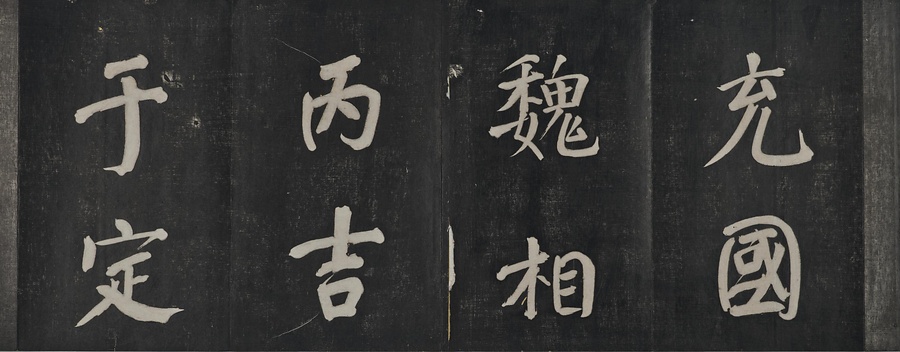 充國
魏相
丙吉
于定